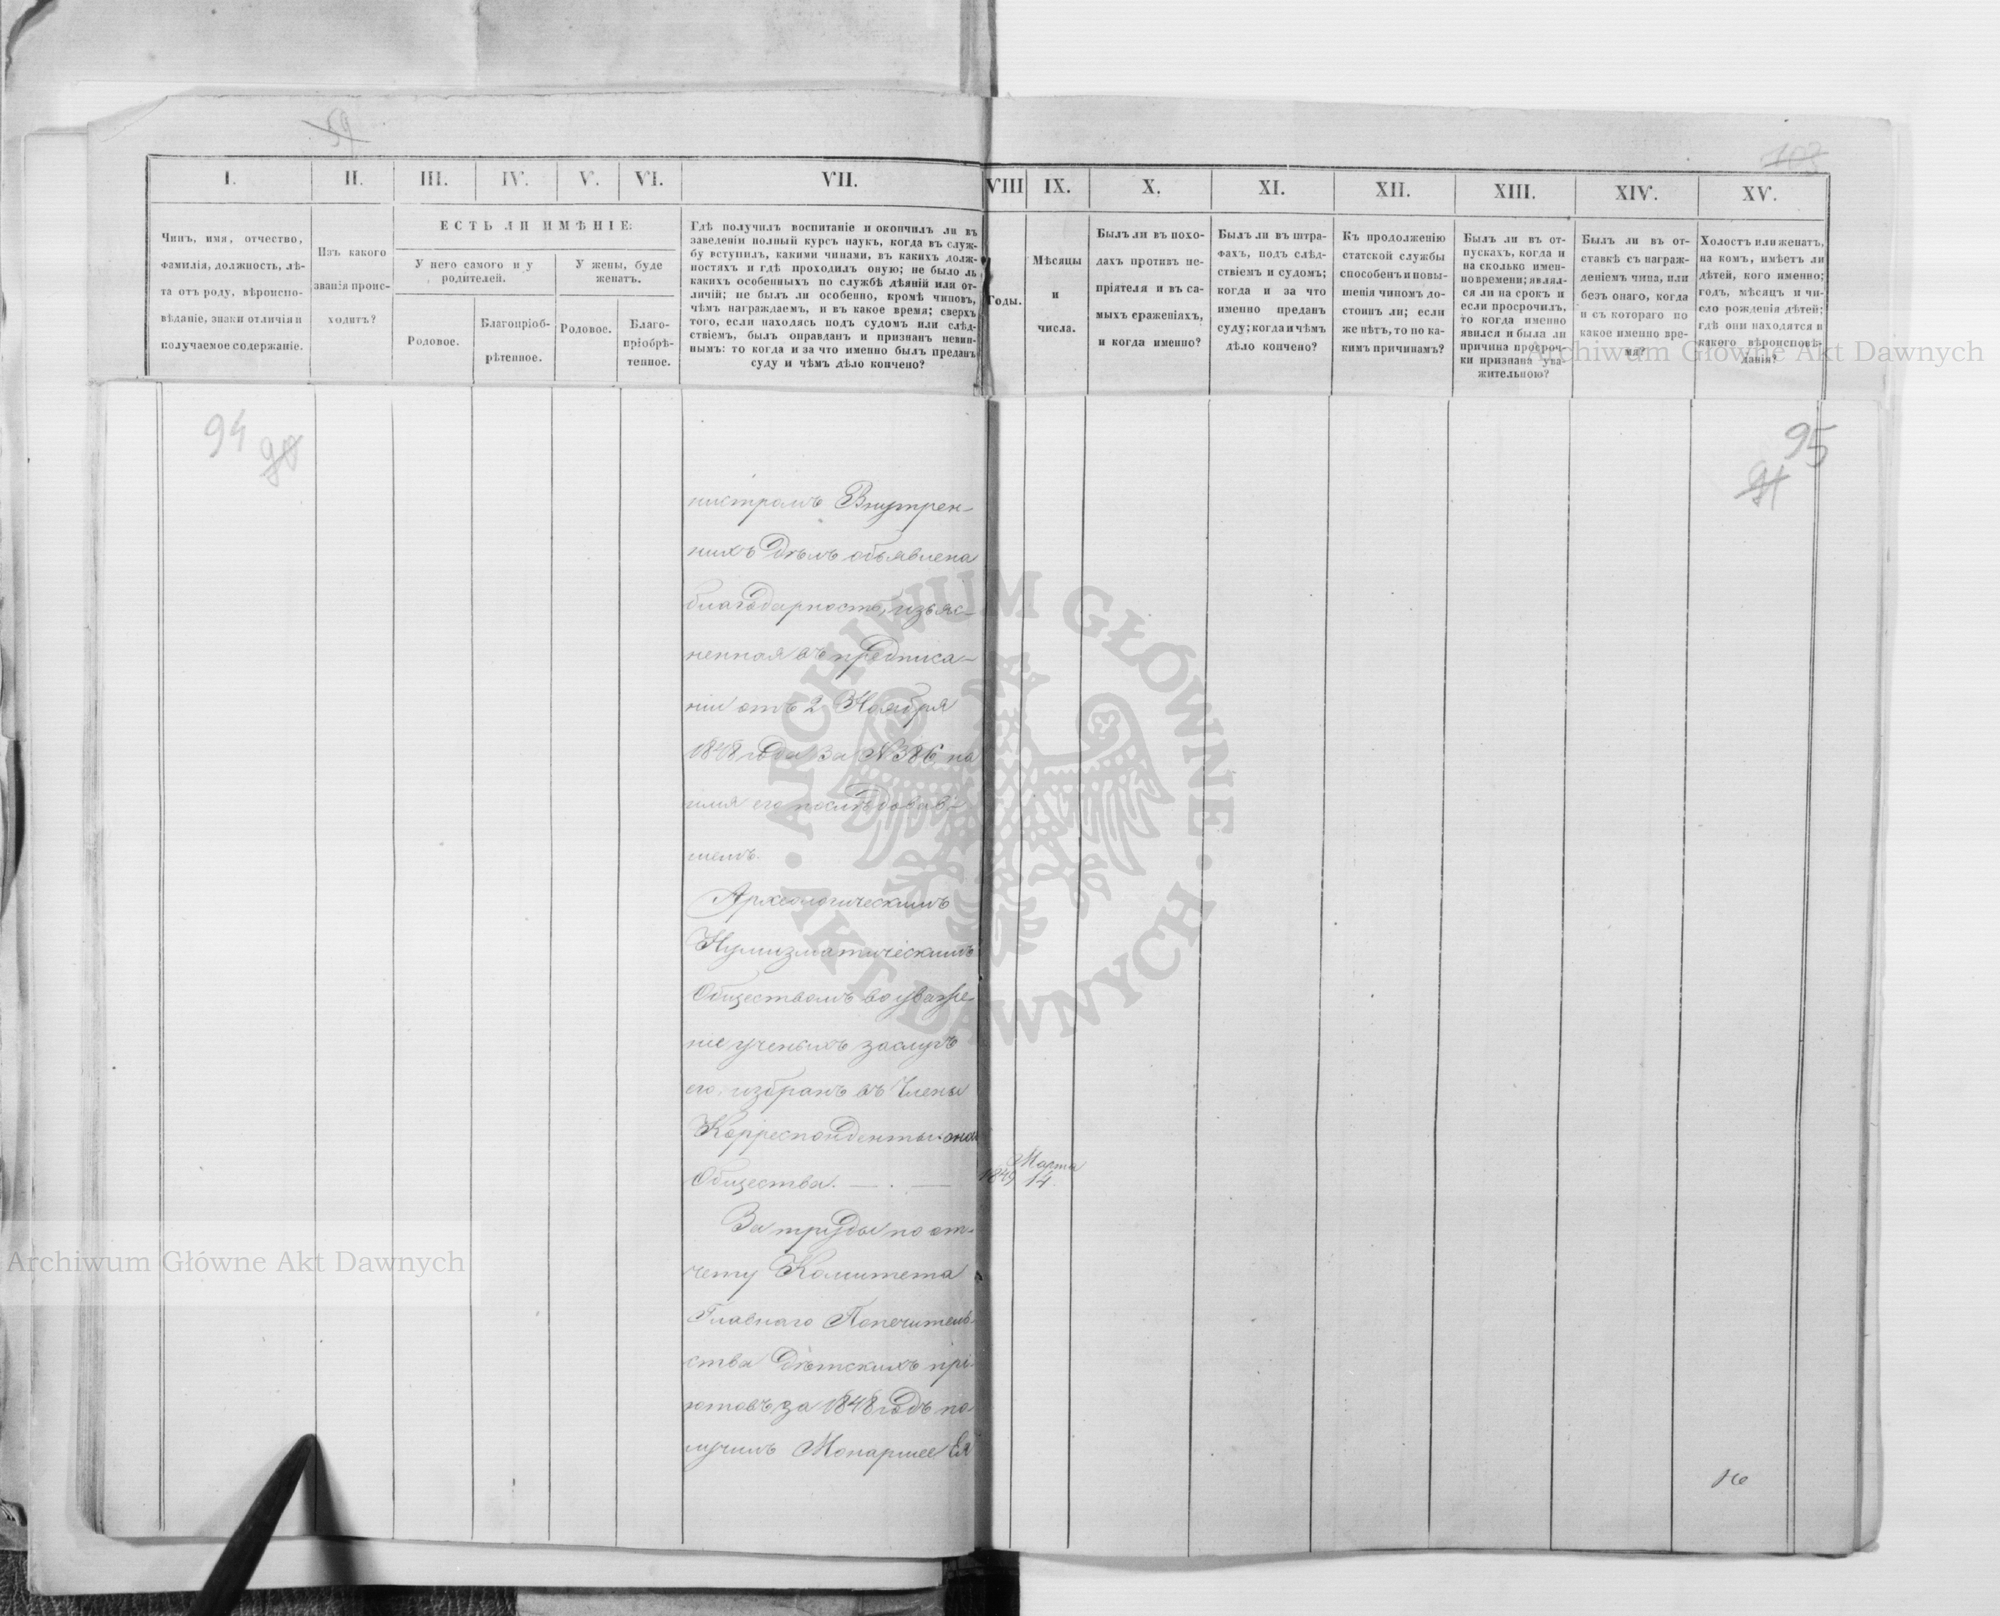 59
103
I. II. III. IV. V. VI. VII. VIII IX. X. XI. XII. XIII. XIV. XV.
Чинъ, имя, отчество,
фамилія, должность, лѣ-
та отъ роду, вѣроиспо-
вѣданіе, знаки отличія и
получаемое содержаніе.
Изъ какого
званія проис-
ходитъ?
ЕСТЬ ЛИ ИМѢНІЕ:
У него самого и у
родителей.
У жены, буде
женатъ.
Родовое.
Благопріоб-
рѣтенное.
Родовое.
Благо-
пріобрѣ-
тенное.
Гдѣ получилъ воспитаніе и окончилъ ли въ
заведеніи полный курсъ наукъ, когда въ служ-
бу вступилъ, какими чинами, въ какихъ долж-
ностяхъ и гдѣ проходилъ оную; не было ль
какихъ особенныхъ по службѣ дѣяній или от-
личій; не былъ ли особенно, кромѣ чиновъ,
чѣмъ награждаемъ, и въ какое время; сверхъ
того, если находясь подъ судомъ или слѣд-
ствіемъ, былъ оправданъ и признанъ невин-
нымъ: то когда и за что именно былъ преданъ
суду и чѣмъ дѣло кончено?
Годы.
Мѣсяцы
и
числа.
Былъ ли въ похо-
дахъ противъ не-
пріятеля и въ са-
мыхъ сраженіяхъ,
и когда именно?
Былъ ли въ штра-
фахъ, подъ слѣд-
ствіемъ и судомъ;
когда и за что
именно преданъ
суду; когда и чѣмъ
дѣло кончено?
Къ продолженію
статской службы
способенъ и повы-
шенія чиномъ до-
стоинъ ли; если
же нѣтъ, то по ка-
кимъ причинамъ?
Былъ ли въ от-
пускахъ, когда и
на сколько имен-
но времени; являл-
ся ли на срокъ и
если просрочилъ,
то когда именно
явился и была ли
причина просроч-
ки признана ува-
жительною?
Былъ ли въ от-
ставкѣ съ награж-
деніемъ чина, или
безъ онаго, когда
и съ котораго по
какое именно вре-
мя?
Холостъ или женатъ,
на комъ, имѣетъ ли
дѣтей, кого именно;
годъ, мѣсяцъ и чи-
сло рожденія дѣтей;
гдѣ они находятся и
какого вѣроисповѣ-
данія?
94
90
95
91
нистромъ Внутрен-
нихъ Дѣлъ объявлена
благодарность, изъяс-
ненная въ предписа-
ніи отъ 2 Ноября
1848 года за № 386 на
имя его послѣдовав-
шемъ.
Археологическимъ
Нумизматическимъ
Обществомъ во уваже-
ніе ученыхъ заслугъ
его, избранъ въ Члены
Корреспонденты онаго
Общества. 1849 Марта 14.
За труды по от-
чету Комитета
Главнаго Попечитель-
ства дѣтскихъ прі-
ютовъ за 1848 годъ по-
лучилъ Монаршее Ея
Archiwum Główne Akt Dawnych
Archiwum Główne Akt Dawnych
ARCHIWUM GŁÓWNE AKT DAWNYCH